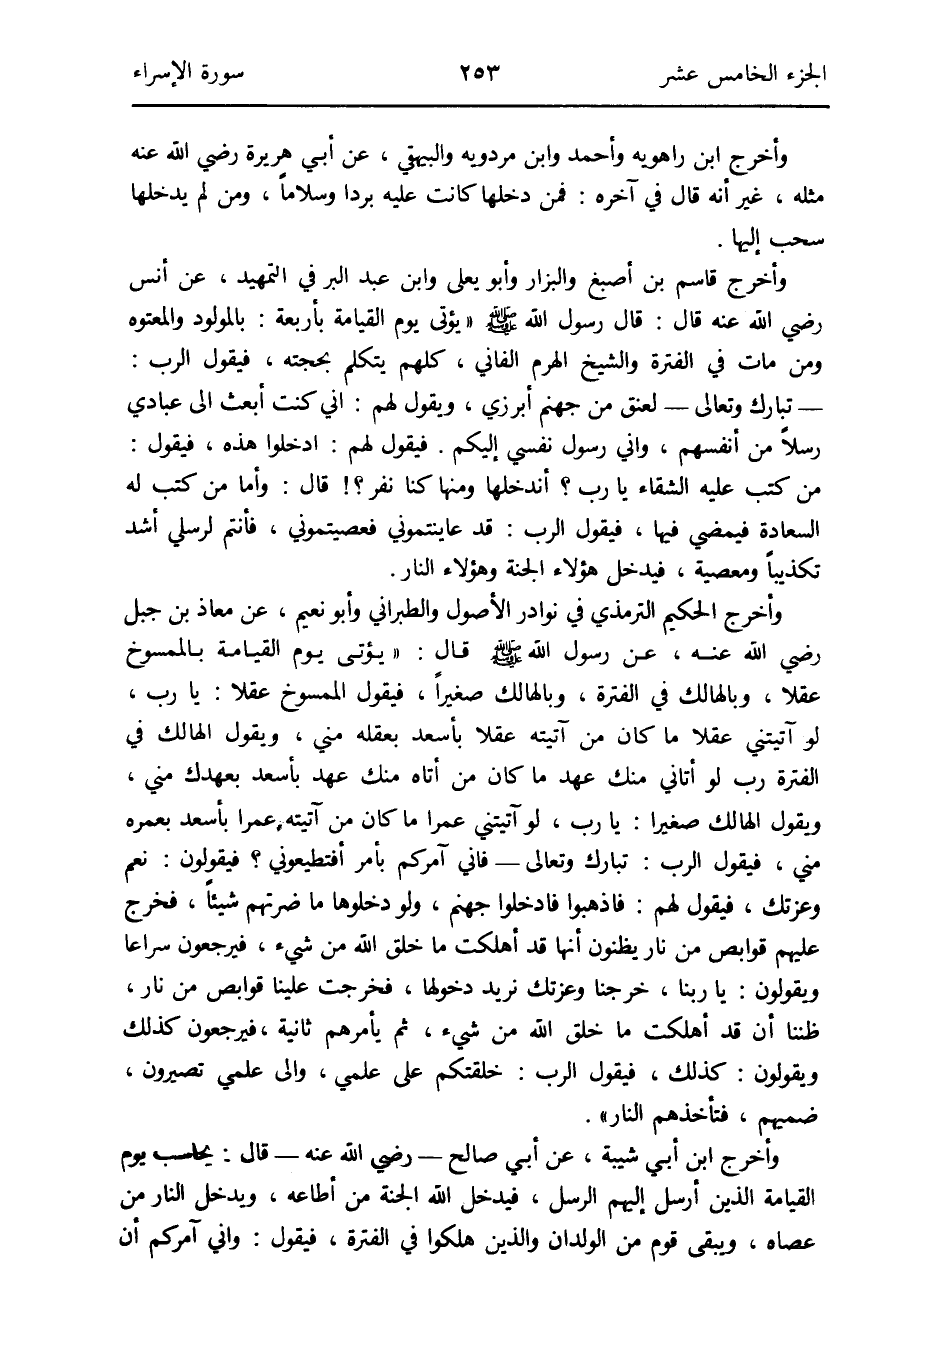 الجزء الخامس عشر ٢٥٣ سورة الإسراء
وأخرج ابن راهويه وأحمد وابن مردويه والبيهقي ، عن أبي هريرة رضي الله عنه
مثله ، غير أنه قال في آخره : فمن دخلها كانت عليه بردا وسلاماً ، ومن لم يدخلها
سحب إليها .
وأخرج قاسم بن أصبغ والبزار وأبو يعلى وابن عبد البر في التمهيد ، عن أنس
رضي الله عنه قال : قال رسول الله ﷺ « يؤتى يوم القيامة بأربعة : بالمولود والمعتوه
ومن مات في الفترة والشيخ الهرم الفاني ، كلهم يتكلم بحجته ، فيقول الرب :
— تبارك وتعالى — لعنق من جهنم أبرزي ، ويقول لهم : اني كنت أبعث الى عبادي
رسلاً من أنفسهم ، واني رسول نفسي إليكم . فيقول لهم : ادخلوا هذه ، فيقول :
من كتب عليه الشقاء يا رب ؟ أندخلها ومنها كنا نفر ؟! قال : وأما من كتب له
السعادة فيمضي فيها ، فيقول الرب : قد عاينتموني فعصيتموني ، فأنتم لرسلي أشد
تكذيباً ومعصية ، فيدخل هؤلاء الجنة وهؤلاء النار .
وأخرج الحكيم الترمذي في نوادر الأصول والطبراني وأبو نعيم ، عن معاذ بن جبل
رضي الله عنه ، عن رسول الله ﷺ قال : « يؤتى يوم القيامة بالممسوخ
عقلا ، وبالهالك في الفترة ، وبالهالك صغيراً ، فيقول الممسوخ عقلا : يا رب ،
لو آتيتني عقلا ما كان من آتيته عقلا بأسعد بعقله مني ، ويقول الهالك في
الفترة رب لو أتاني منك عهد ما كان من أتاه منك عهد بأسعد بعهدك مني ،
ويقول الهالك صغيرا : يا رب ، لو آتيتني عمرا ما كان من آتيته عمرا بأسعد بعمره
مني ، فيقول الرب : تبارك وتعالى — فاني آمركم بأمر أفتطيعوني ؟ فيقولون : نعم
وعزتك ، فيقول لهم : فاذهبوا فادخلوا جهنم ، ولو دخلوها ما ضرتهم شيئاً ، فخرج
عليهم قوابص من نار يظنون أنها قد أهلكت ما خلق الله من شيء ، فيرجعون سراعا
ويقولون : يا ربنا ، خرجنا وعزتك نريد دخولها ، فخرجت علينا قوابص من نار ،
ظننا أن قد أهلكت ما خلق الله من شيء ، ثم يأمرهم ثانية ، فيرجعون كذلك
ويقولون : كذلك ، فيقول الرب : خلقتكم على علمي ، والى علمي تصيرون ،
ضميهم ، فتأخذهم النار» .
وأخرج ابن أبي شيبة ، عن أبي صالح — رضي الله عنه — قال : يحاسب يوم
القيامة الذين أرسل إليهم الرسل ، فيدخل الله الجنة من أطاعه ، ويدخل النار من
عصاه ، ويبقى قوم من الولدان والذين هلكوا في الفترة ، فيقول : واني آمركم أن